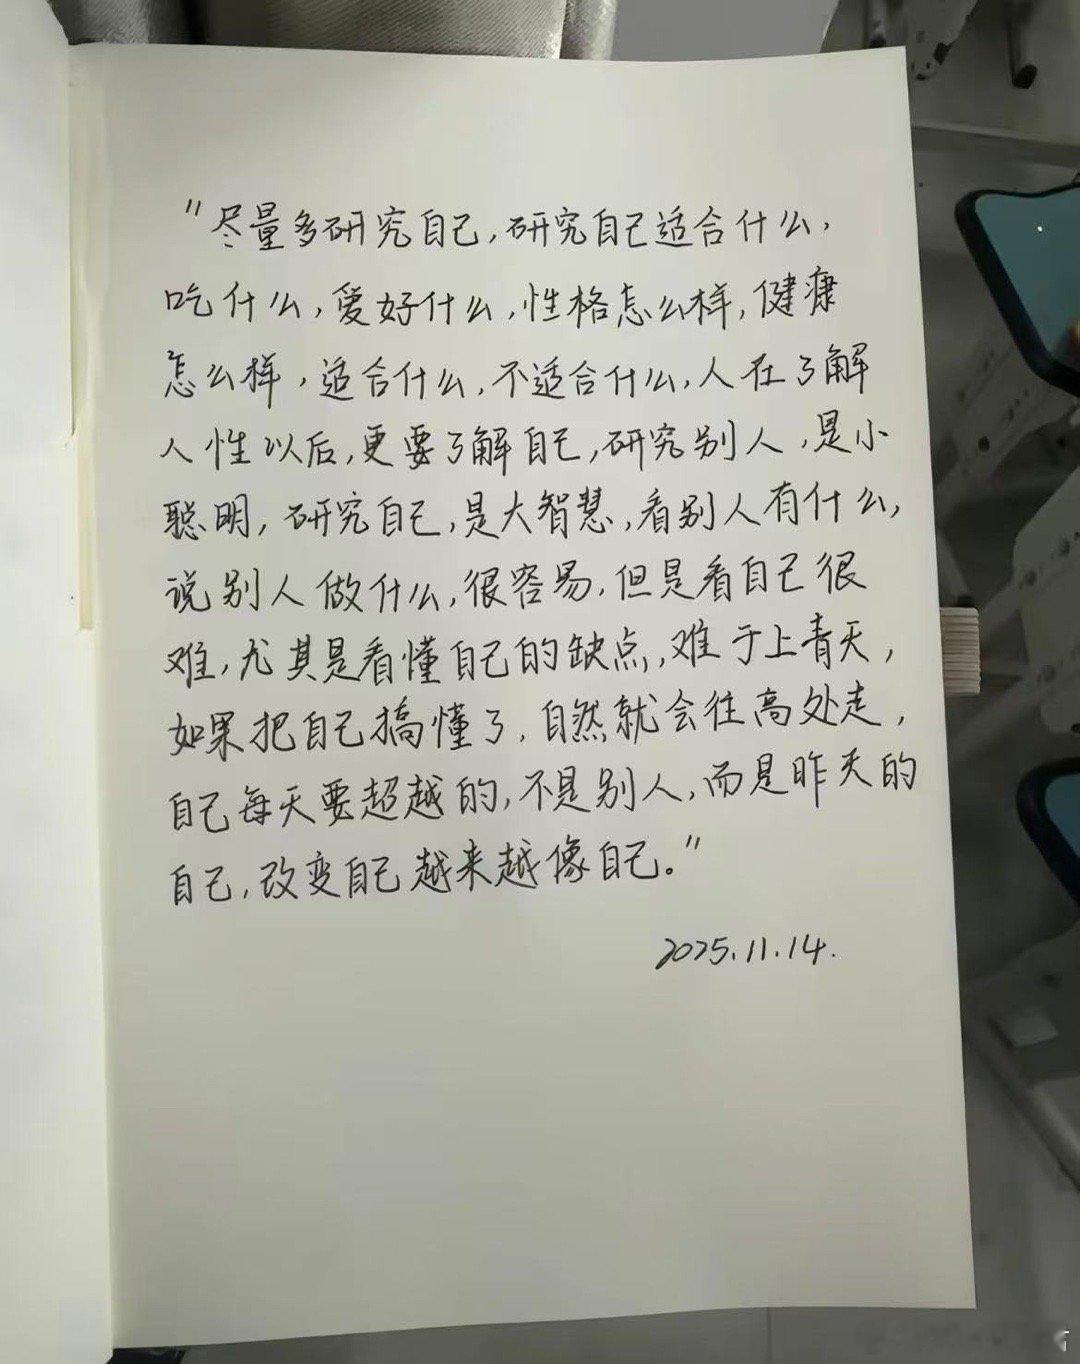 "尽量多研究自己,研究自己适合什么,
吃什么,爱好什么,性格怎么样,健康
怎么样,适合什么,不适合什么,人在了解
人性以后,更要了解自己,研究别人,是小
聪明,研究自己,是大智慧,看别人有什么,
说别人做什么,很容易,但是看自己很
难,尤其是看懂自己的缺点,难于上青天,
如果把自己搞懂了,自然就会往高处走,
自己每天要超越的,不是别人,而是昨天的
自己,改变自己越来越像自己。"
2025.11.14.